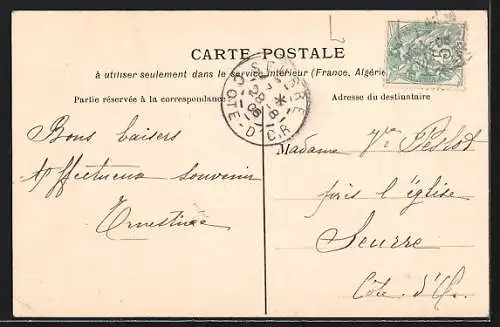 CARTE POSTALE
à utiliser seulement dans le service intérieur (France, Algérie
Partie réservée à la correspondance
Adresse du destinataire
SEURRE
COTE-D'OR
5
Bons baisers
Affectueux souvenir
Ernestine
Madame Vve
près l'église
Seurre
Côte-d'Or